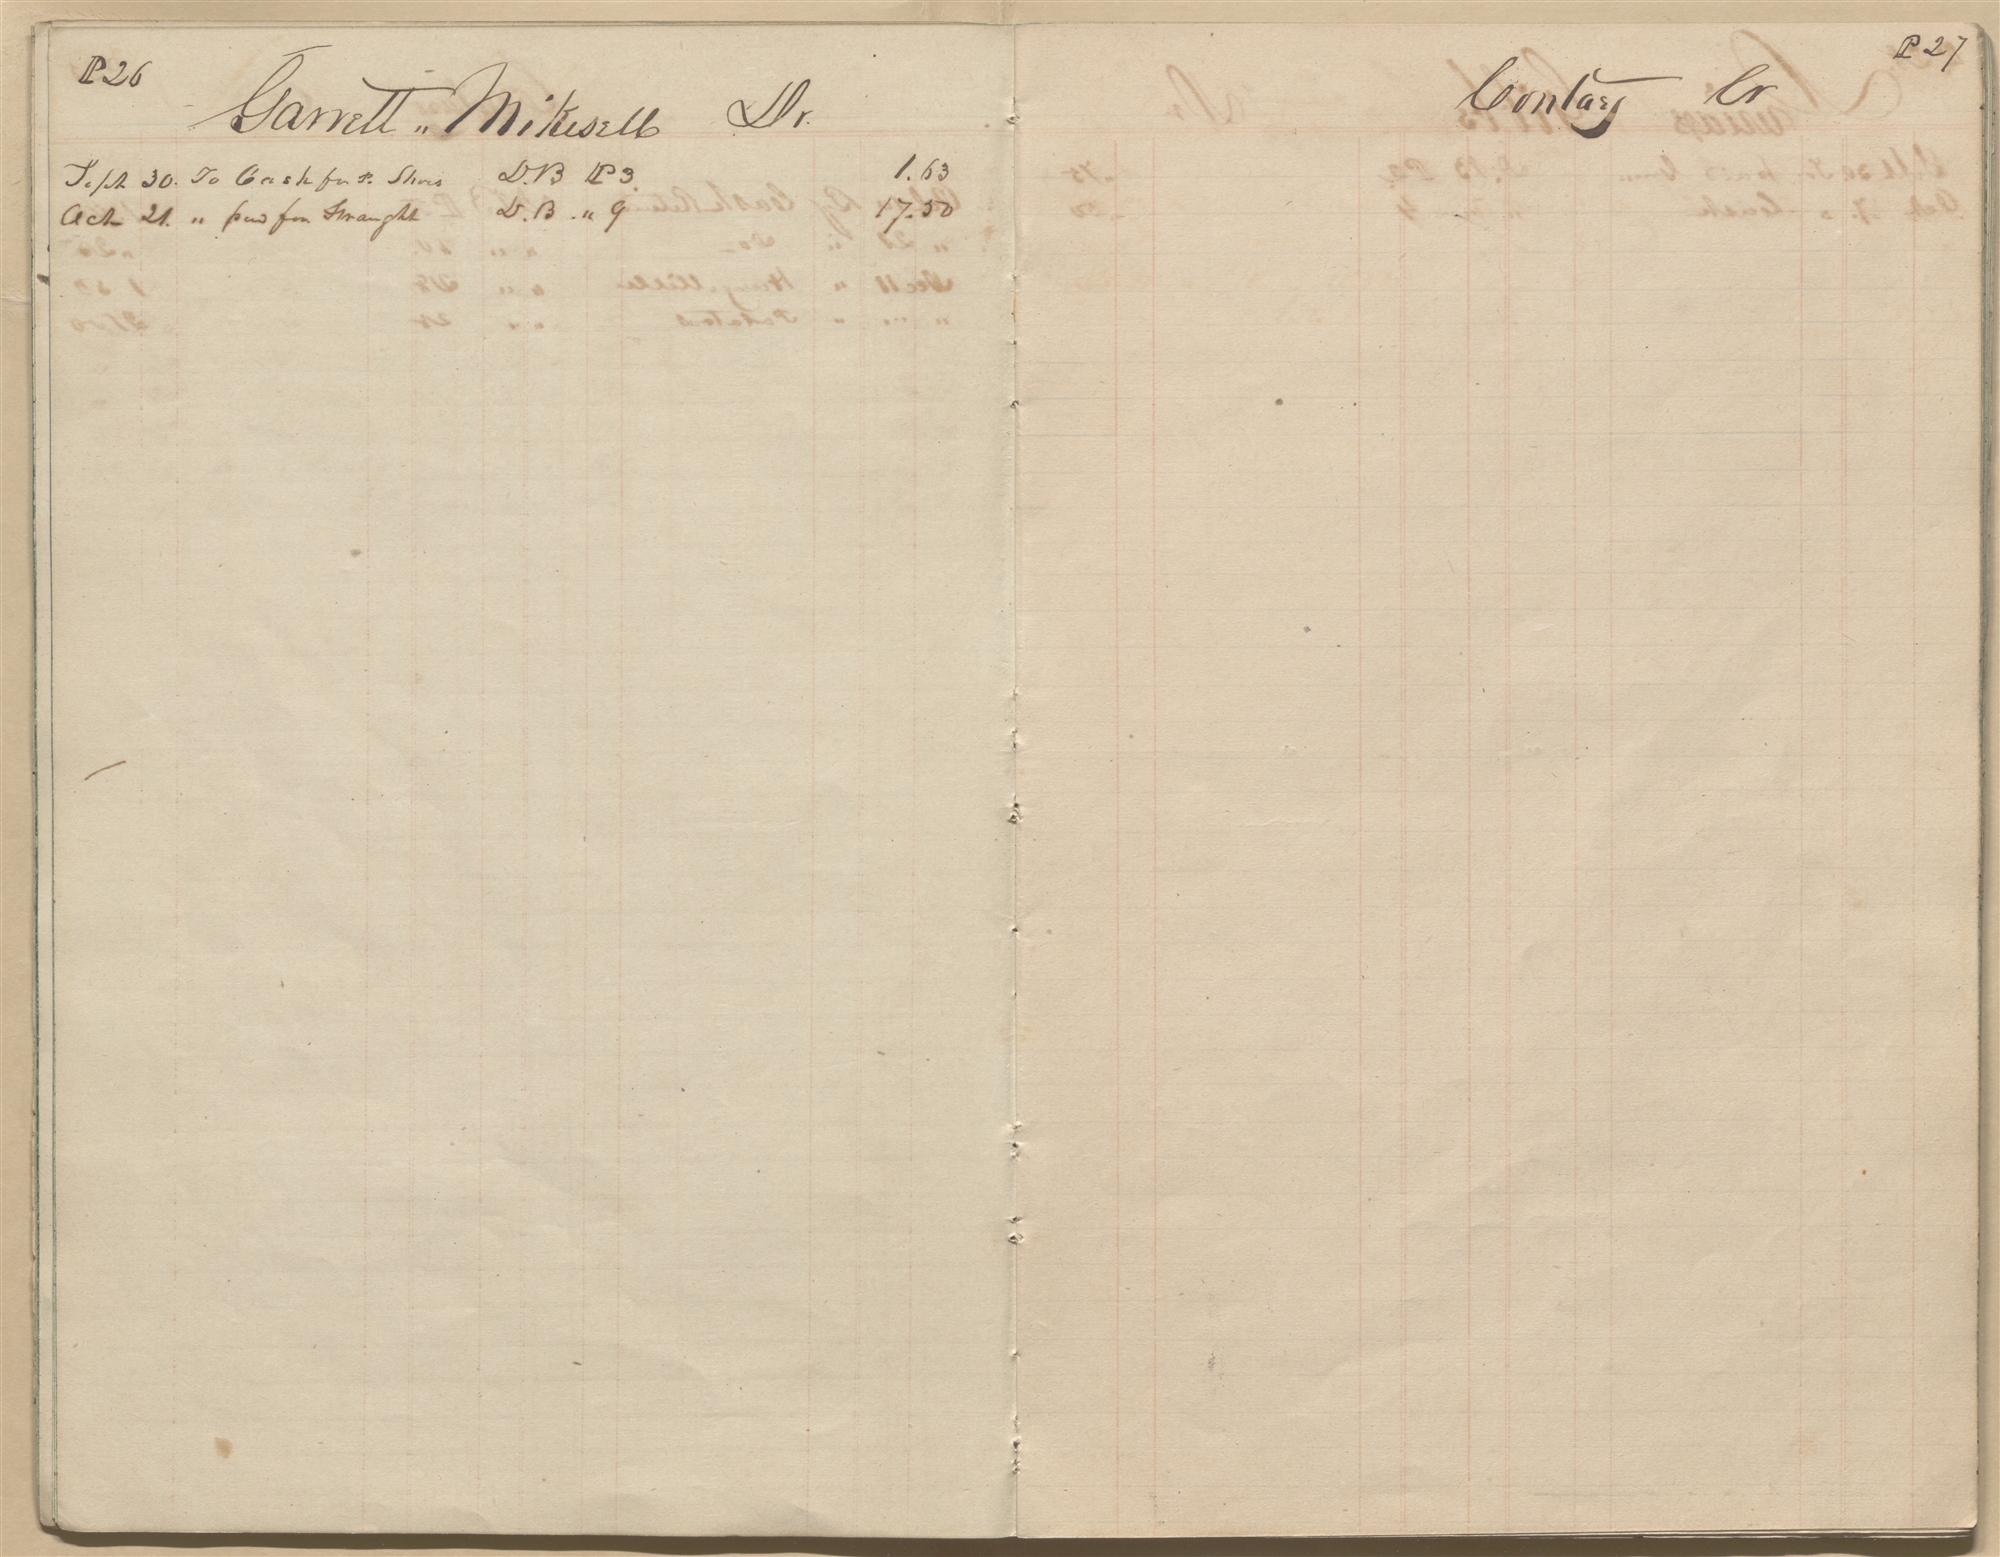 P 26
Garrett " Mikesell Dr.
Sept 30. To Cash for P. Shoes D.B P 3 1.63
Oct 21. " paid for Straught D.B. " 9 17.50
P 27
Contary Cr